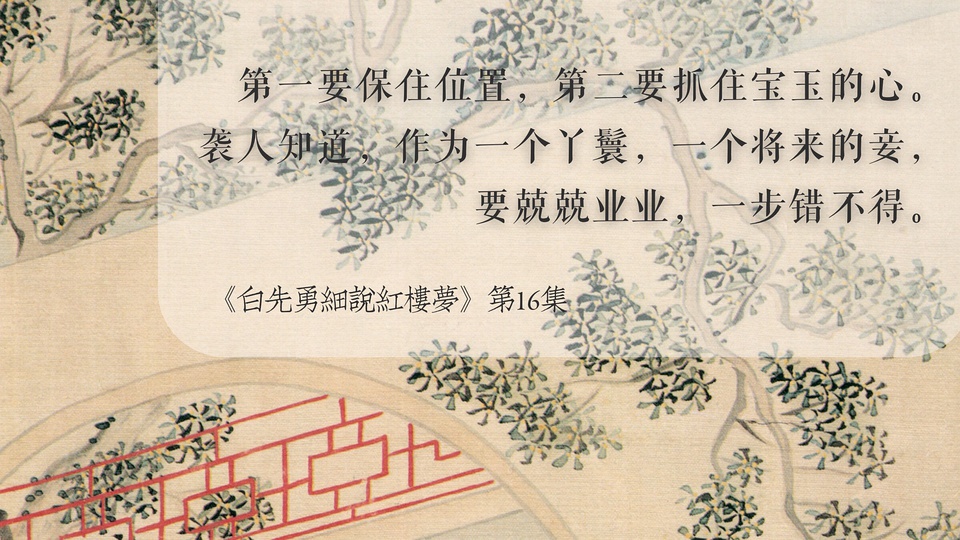 第一要保住位置，第二要抓住宝玉的心。
袭人知道，作为一个丫鬟，一个将来的妾，
要兢兢业业，一步错不得。
《白先勇細說紅樓夢》第16集